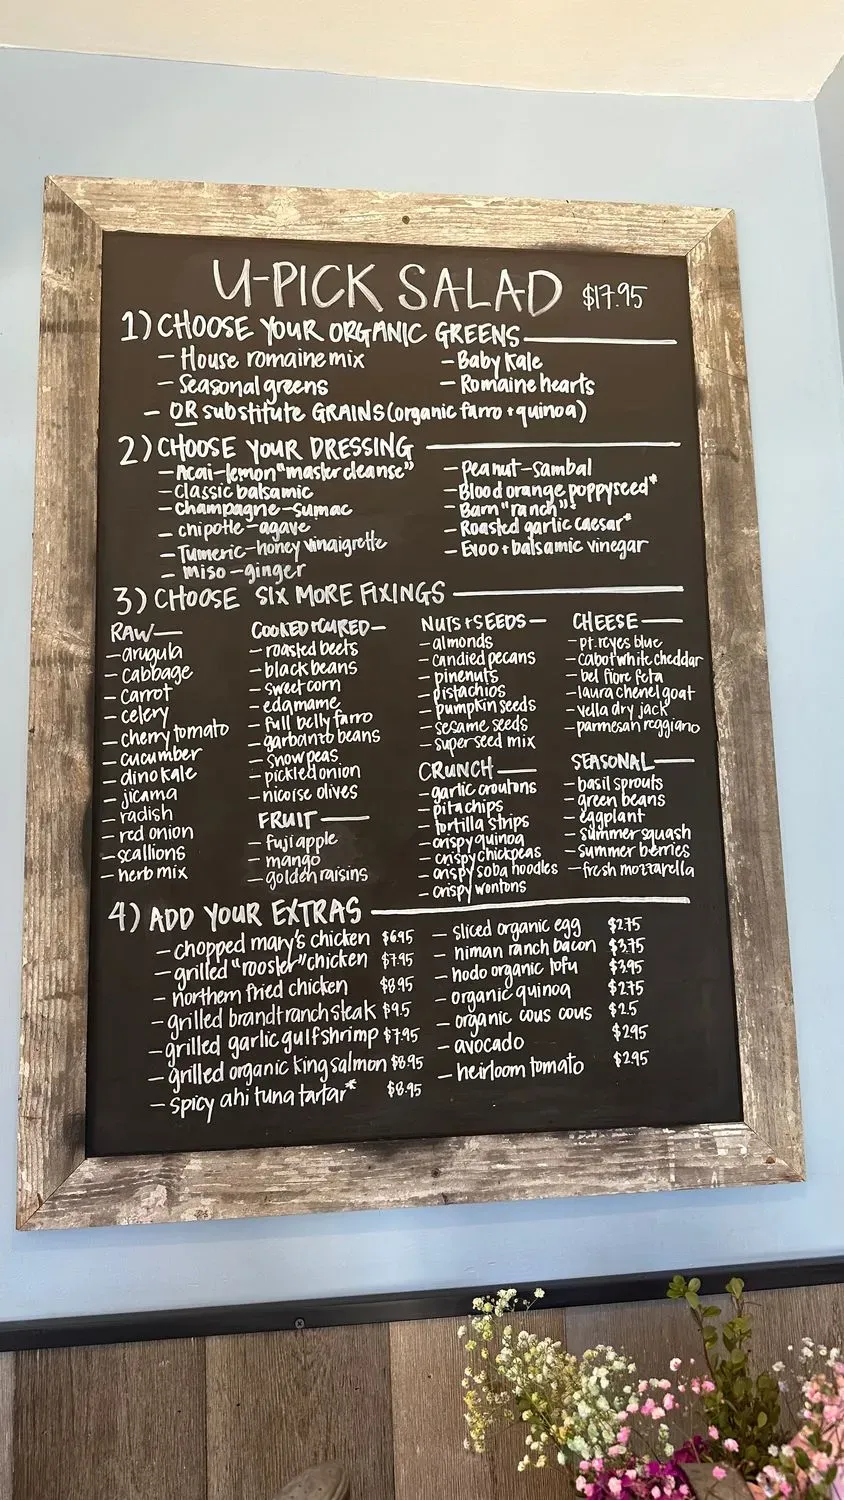 U-PICK SALAD $17.95
1) CHOOSE YOUR ORGANIC GREENS
- House romaine mix
- Seasonal greens
- Baby Kale
- Romaine hearts
- OR substitute GRAINS (organic farro + quinoa)
2) CHOOSE YOUR DRESSING
- Acai-lemon "master cleanse"
- Classic balsamic
- Champagne-sumac
- chipotle-agave
- Tumeric-honey vinaigrette
- miso-ginger
- peanut-sambal
- Blood orange poppyseed*
- Barn "ranch"*
- Roasted garlic caesar*
- Evoo + balsamic vinegar
3) CHOOSE SIX MORE FIXINGS
RAW
- arugula
- cabbage
- carrot
- celery
- cherry tomato
- cucumber
- dino kale
- jicama
- radish
- red onion
- scallions
- herb mix
COOKED + CURED
- roasted beets
- black beans
- sweet corn
- edamame
- full belly farro
- garbanzo beans
- snow peas
- pickled onion
- nicoise olives
FRUIT
- fuji apple
- mango
- golden raisins
NUTS + SEEDS
- almonds
- candied pecans
- pinenuts
- pistachios
- pumpkin seeds
- sesame seeds
- super seed mix
CRUNCH
- garlic croutons
- pita chips
- tortilla strips
- crispy quinoa
- crispy chickpeas
- crispy soba noodles
- crispy wontons
CHEESE
- pt. reyes blue
- cabot white cheddar
- bel fiore feta
- laura chenel goat
- vella dry jack
- parmesan reggiano
SEASONAL
- basil sprouts
- green beans
- eggplant
- summer squash
- summer berries
- fresh mozzarella
4) ADD YOUR EXTRAS
- chopped mary's chicken $6.95
- grilled "rooster" chicken $7.95
- northern fried chicken $8.95
- grilled brandt ranch steak $9.5
- grilled garlic gulf shrimp $7.95
- grilled organic king salmon $8.95
- spicy ahi tuna tartar* $8.95
- sliced organic egg $2.75
- niman ranch bacon $3.75
- hodo organic tofu $3.95
- organic quinoa $2.75
- organic cous cous $2.5
- avocado $2.95
- heirloom tomato $2.95